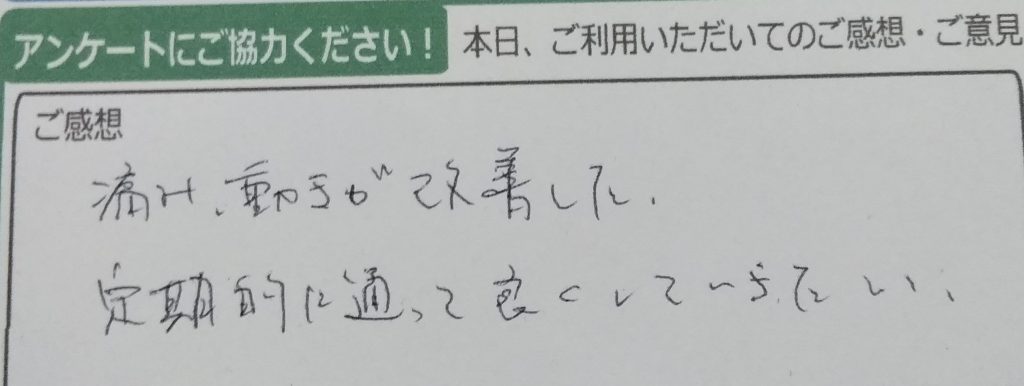 アンケートにご協力ください！ 本日、ご利用いただいてのご感想・ご意見
ご感想
痛み、動きが改善した。
定期的に通って良くしていきたい、